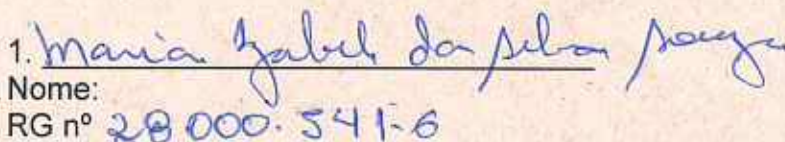 1. Maria Izabel da Silva Souza
Nome:
RG nº 28 000. 541-6